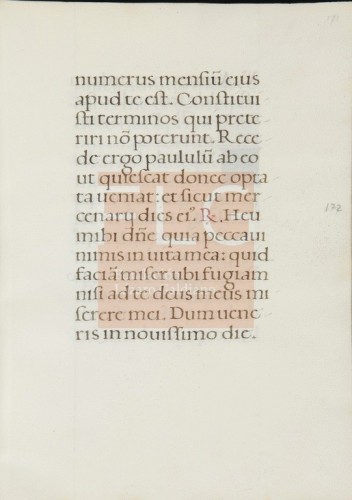 numerus mensiū eius
apud te est. Constitui
sti terminos qui prete
riri nō poterunt. Rece
de ergo paululū ab eo
ut quiescat donec opta
ta ueniat: et sicut mer
cenarij dies ei⁹. R. Heu
mihi dn̄e quia peccaui
nimis in uita mea: quid
faciā miser ubi fugiam
nisi ad te deus meus mi
serere mei. Dum uene
ris in nouissimo die.
172